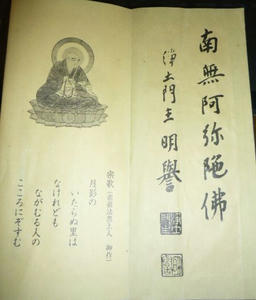 南無阿弥陀佛
浄土門主 明譽
宗歌（宗祖法然上人 御作）
月影の
いたらぬ里は
なけれども
ながむる人の
こころにぞすむ